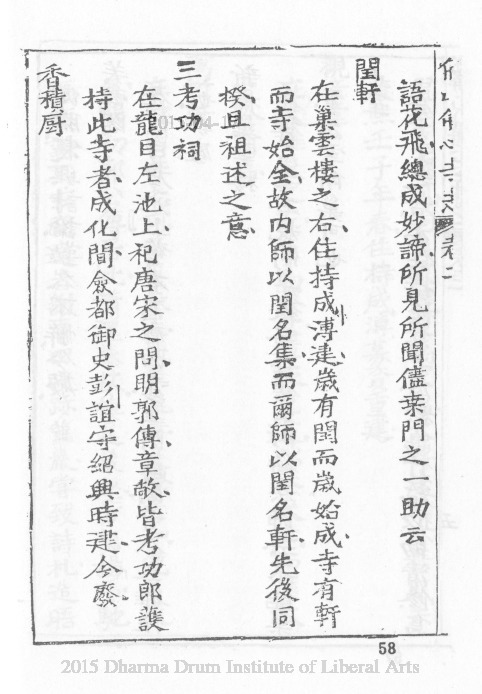 語花飛總成妙諦所見所聞儘桒門之一助云
閏軒
在巢雲樓之右住持成溥建歲有閏而歲始成寺有軒
而寺始全故内師以閏名集而爾師以閏名軒先後同
揆且祖述之意
三考功祠
在龍目左池上祀唐宋之問明郭傳章敞皆考功郎護
持此寺者成化間僉都御史彭誼守紹興時建今廢
香積厨
58
2015 Dharma Drum Institute of Liberal Arts